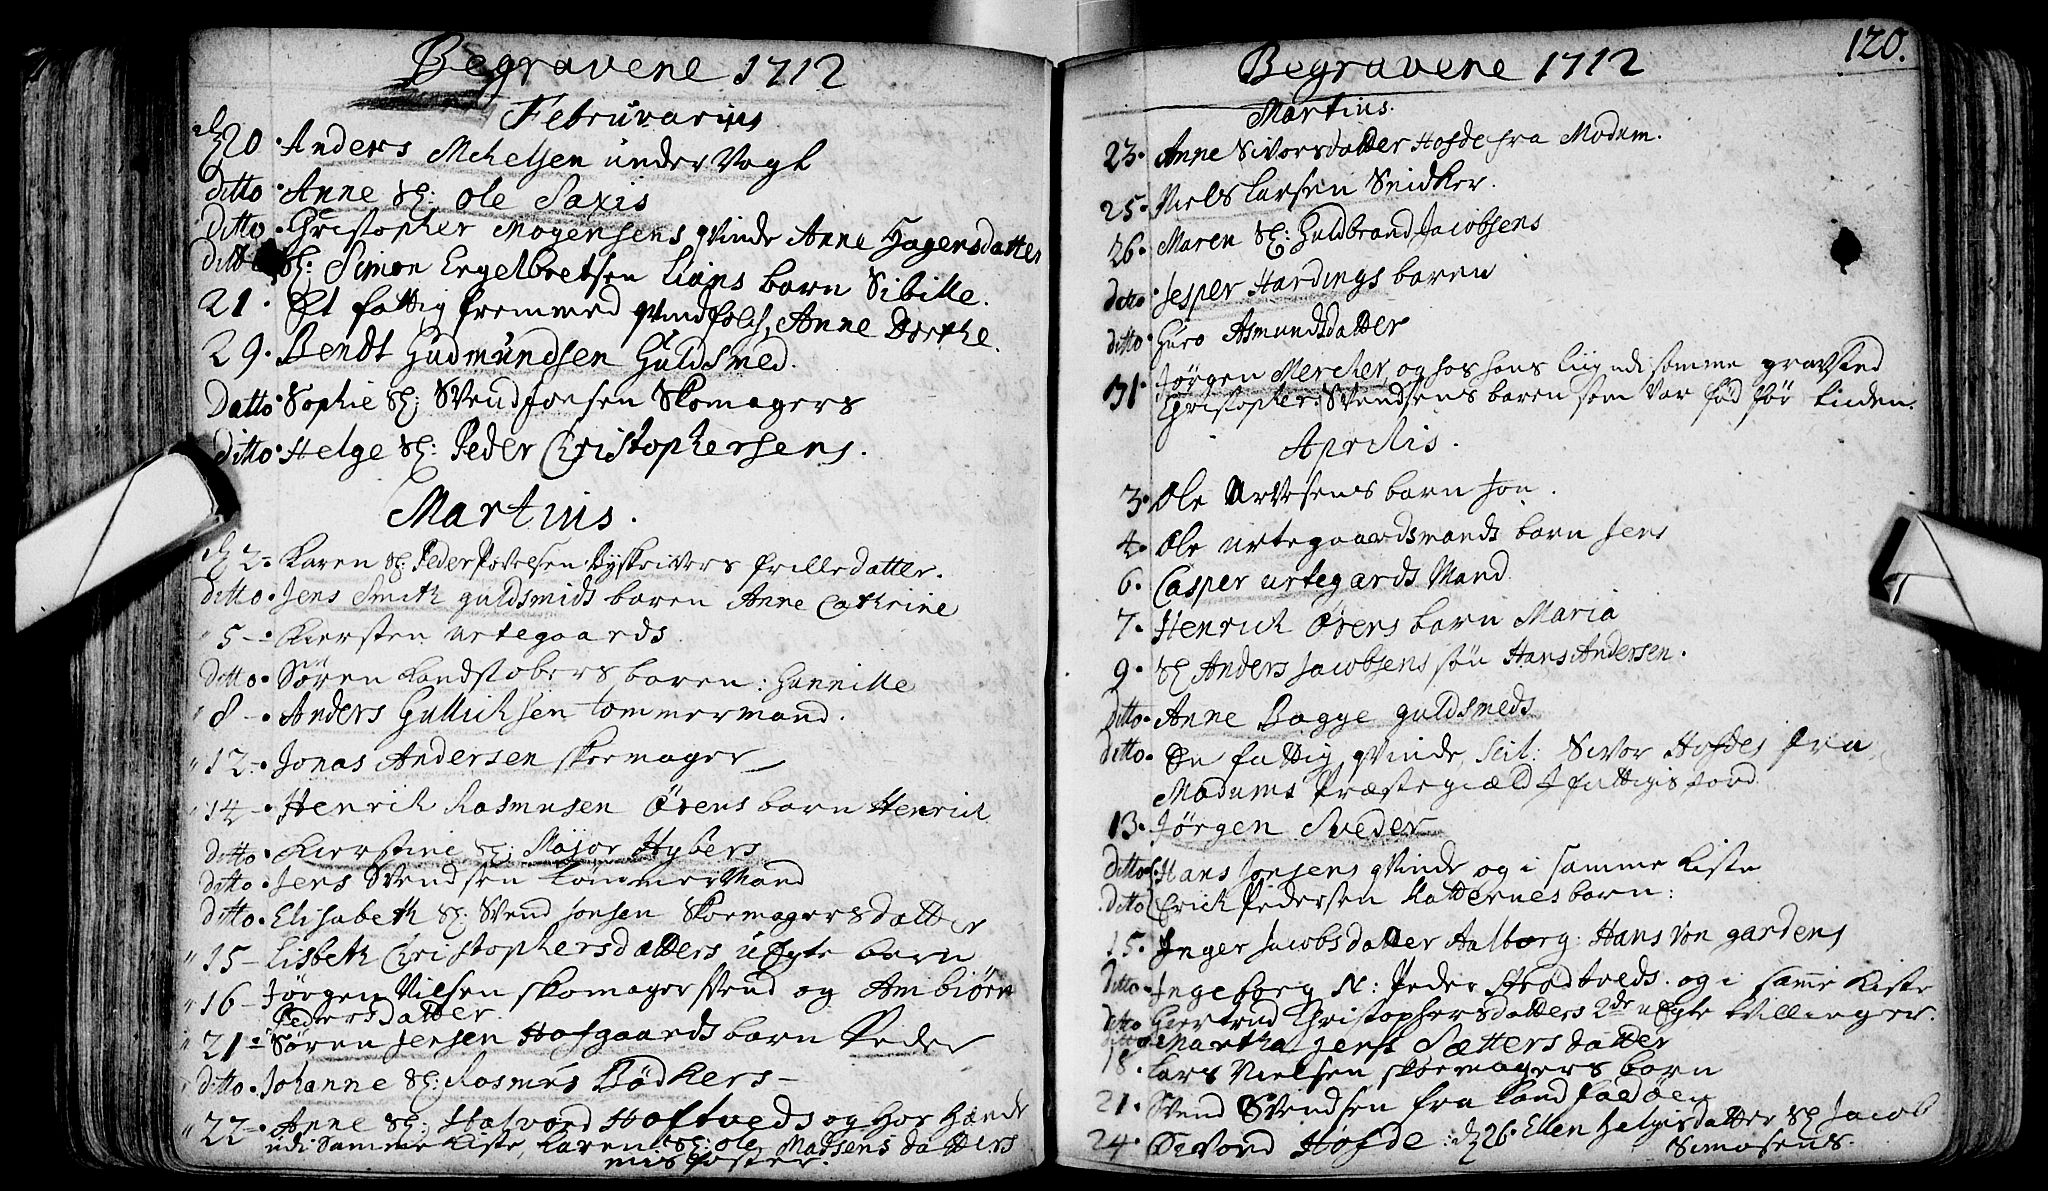 Begravene 1712
Februvarius
d 20. Anders Michelsen under Vogt
ditto. Anne Sl: Ole Saxis
Ditto. Christopher Mogensens qvinde Anne Hagensdatter
ditto Sl: Simon Engelbretsen Liens barn Sibille.
21. Et fattig fremmed qvindfolch, Anne Dorthe.
29. Bendt Gudmundsen Guldsmed.
Datto. Sophie Sl: Svend Jonsen Skomagers
ditto. Helge Sl: Peder Christophersens.
Martius.
d 2. Karen Sl: Peder Povelsen Byskrivers frilledatter.
ditto. Jens Smith guldsmids baren Anne Cathrine
5. Kiersten urtegaards
Ditto. Søren baren: Hannille
8. Anders Gullichsen tommermand.
12. Jonas Andersen skoemager
14. Henrich Rasmusen Øvens barn Henrich
ditto. Kierstine Sl: Major Hybers
ditto. Jens Svendsen tømmerMand
ditto. Elisabeth Sl. Svend Jonsen Skoemagers datter
15 Lisbeth Christophersdatters uEgte barn
16 Jørgen Nilsen skomagersvend og Ambiørn
Pedersdatter.
21 Søren Jensen Hofgaards barn Peder
ditto. Johanne Sl: Rasmus Bødkers
22 Anne Sl: Halvord Hoftveds og hos Hende
udi Samme Kiste, Karen Sl: Ole Madsens datters
misfoster.
Begravene 1712
120.
Martius.
23. Anne Sivorsdatter Hofde fra Modum.
25. Niels Larsen Snidker.
26. Maren Sl: Guldbrand Jacobsens
ditto. Jesper Hardings baren
ditto. Guro Asmundsdatter
31. Jørgen Mercher, og hos hans Liig udi samme grav
Christopher Svendsens baren som var fød før tiden.
Aprilis.
3. Ole barn Jon.
4. Ole urtegaardsmands barn Jens
6. Casper urtegards Mand
7. Henrich Øvens barn Maria
9. Sl Anders Jacobsens søn Hans Andersen.
Ditto. Anne Bagge guldsmeds
ditto. En fattig qvinde, Scil: Sivor Hofdes fra
Modums Præstegiæld J fattigis Jord
13. Jørgen Sveder
ditto. Hans Jonsens qvinde og i samme Kiste
ditto Erich Pedersen barn:
15. Inger Jacobsdatter Aalborg: Hans von gardens
Ditto. Ingeborg Sl: Peder og i samme Kiste
ditto Giertrud Christophersdatters 2de uEgte tvillinger.
ditto Martha Jens Sætters datter
18. Lars Nielsen skoemagers barn
21. Svend Svendsen fra Landfaldøen
24. Sivord Hofde: d 26. Ellen Helgisdatter Sl Jacob
Simosens.